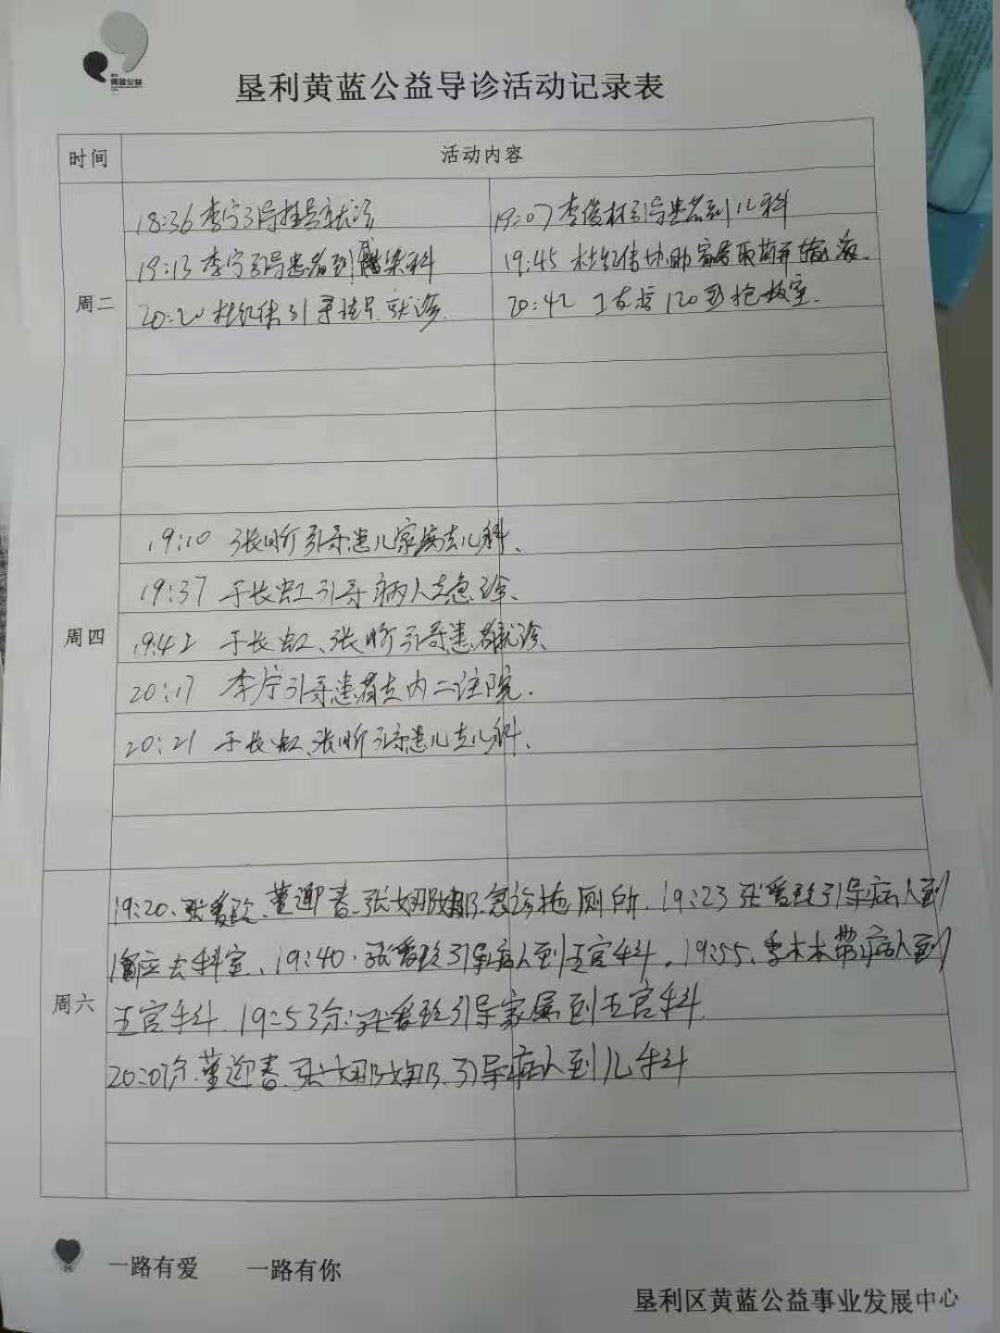 黄蓝公益
垦利黄蓝公益导诊活动记录表
时间 活动内容
周二
18:36 李宁引导挂号就诊
19:07 李俊材引导患者到儿科
19:13 李宁引导患者到感染科
19:45 杜红伟协助家属取药开输液.
20:20 杜红伟引导挂号.就诊.
20:42 120到抢救室.
周四
19:10 张昕引导患儿家属去儿科、
19:37 于长虹引导病人去急诊、
19:42 于长虹、张昕引导患者就诊、
20:17 李宁引导患者去内二住院.
20:21 于长虹、张昕引导患儿去儿科、
周六
19:20、张爱玲、董迎春、张娜娜、急诊拖厕所、19:23 张爱玲引导病人到
应去科室、19:40、张爱玲引导病人到五官科、19:55、季木本带病人到
五官科、19:53分、张爱玲引导家属到五官科、
20:07分、董迎春、张娜娜、引导病人到儿科
一路有爱 一路有你
垦利区黄蓝公益事业发展中心